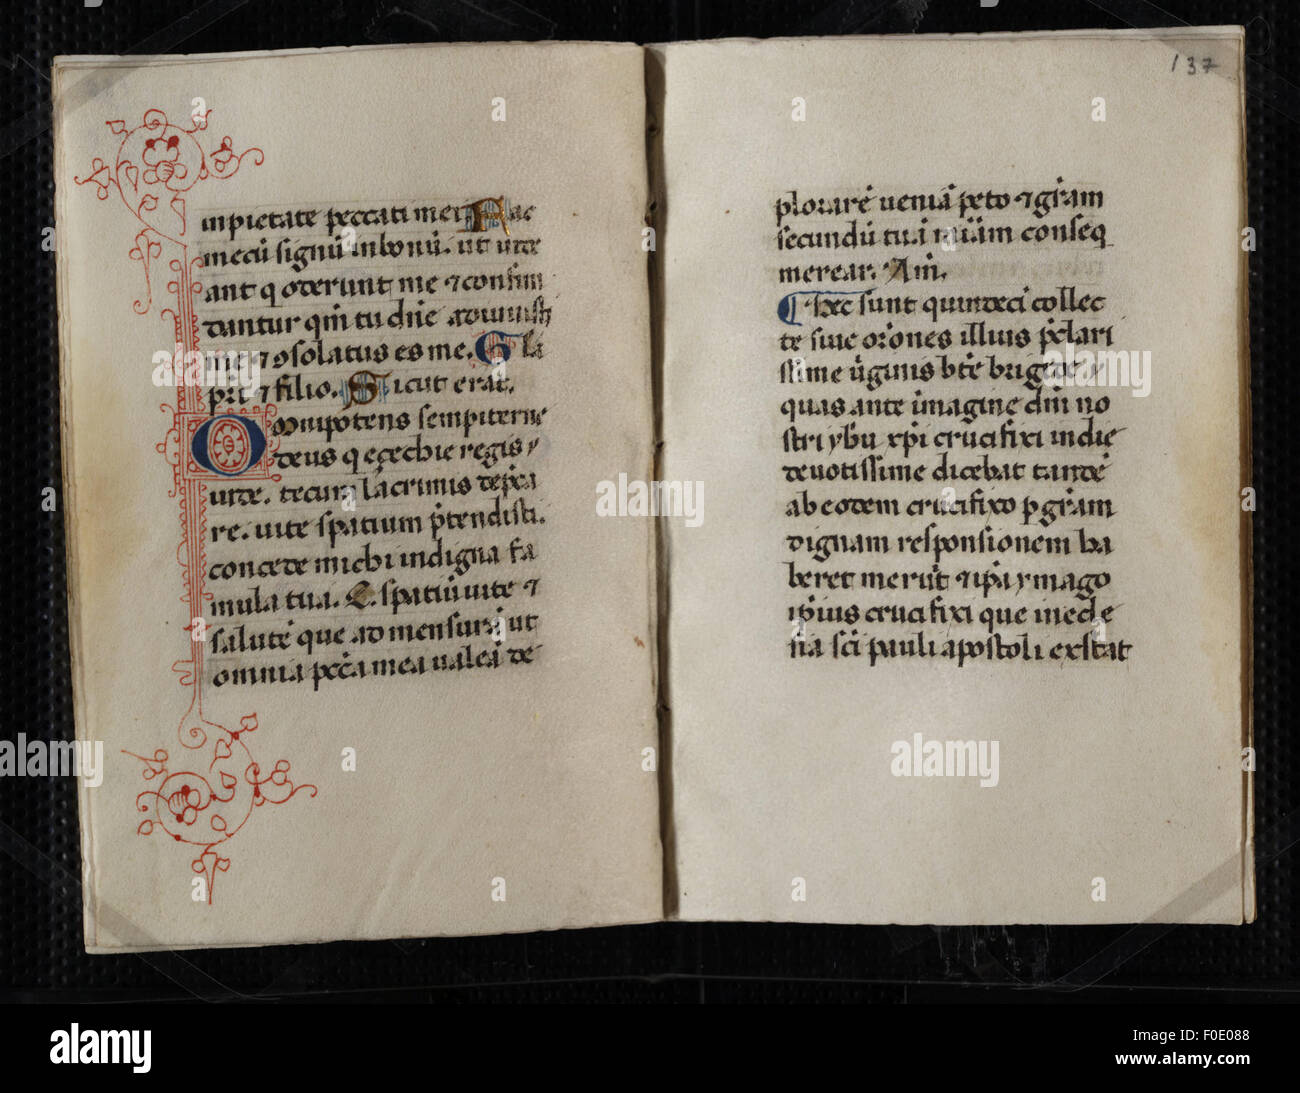 impietate peccati mei. Fac
mecū signū in bonū. ut vide
ant q oderunt me ⁊ confun
dantur qm̄ tu dn̄e adiuuisti
me ⁊ ɔsolatus es me. Gla
pr̄i ⁊ filio. Sicut erat.
Omnipotens sempiterne
deus q eçechie regis y
urde. te cum lacrimis dep̄ca
re. uite spatium p̄tendisti.
concede michi indigna fa
mula tua. spatiū uite ⁊
salutē que ad mensurā ut
omnia pcc̄a mea valeā de
137
plorare ueniā peto ⁊ gr̄am
secundū tuā mīam conseq
merear. Am̄.
Hec sunt quindeci collec
te siue or̄ones illius p̄clari
ssime ūginis btē brigide y
quas ante imagine dn̄i no
stri yhu xp̄i crucifixi in die
deuotissime dicebat tande
ab eodem crucifixo p gr̄am
dignam responsionem ha
bere meruit ⁊ ip̄a ymago
ip̄ius crucifixi que in ecle
sia sc̄i pauli apostoli exstat
alamy
a
a
a
a
a
a
a
a
a
a
alamy
Image ID: F0E088
www.alamy.com